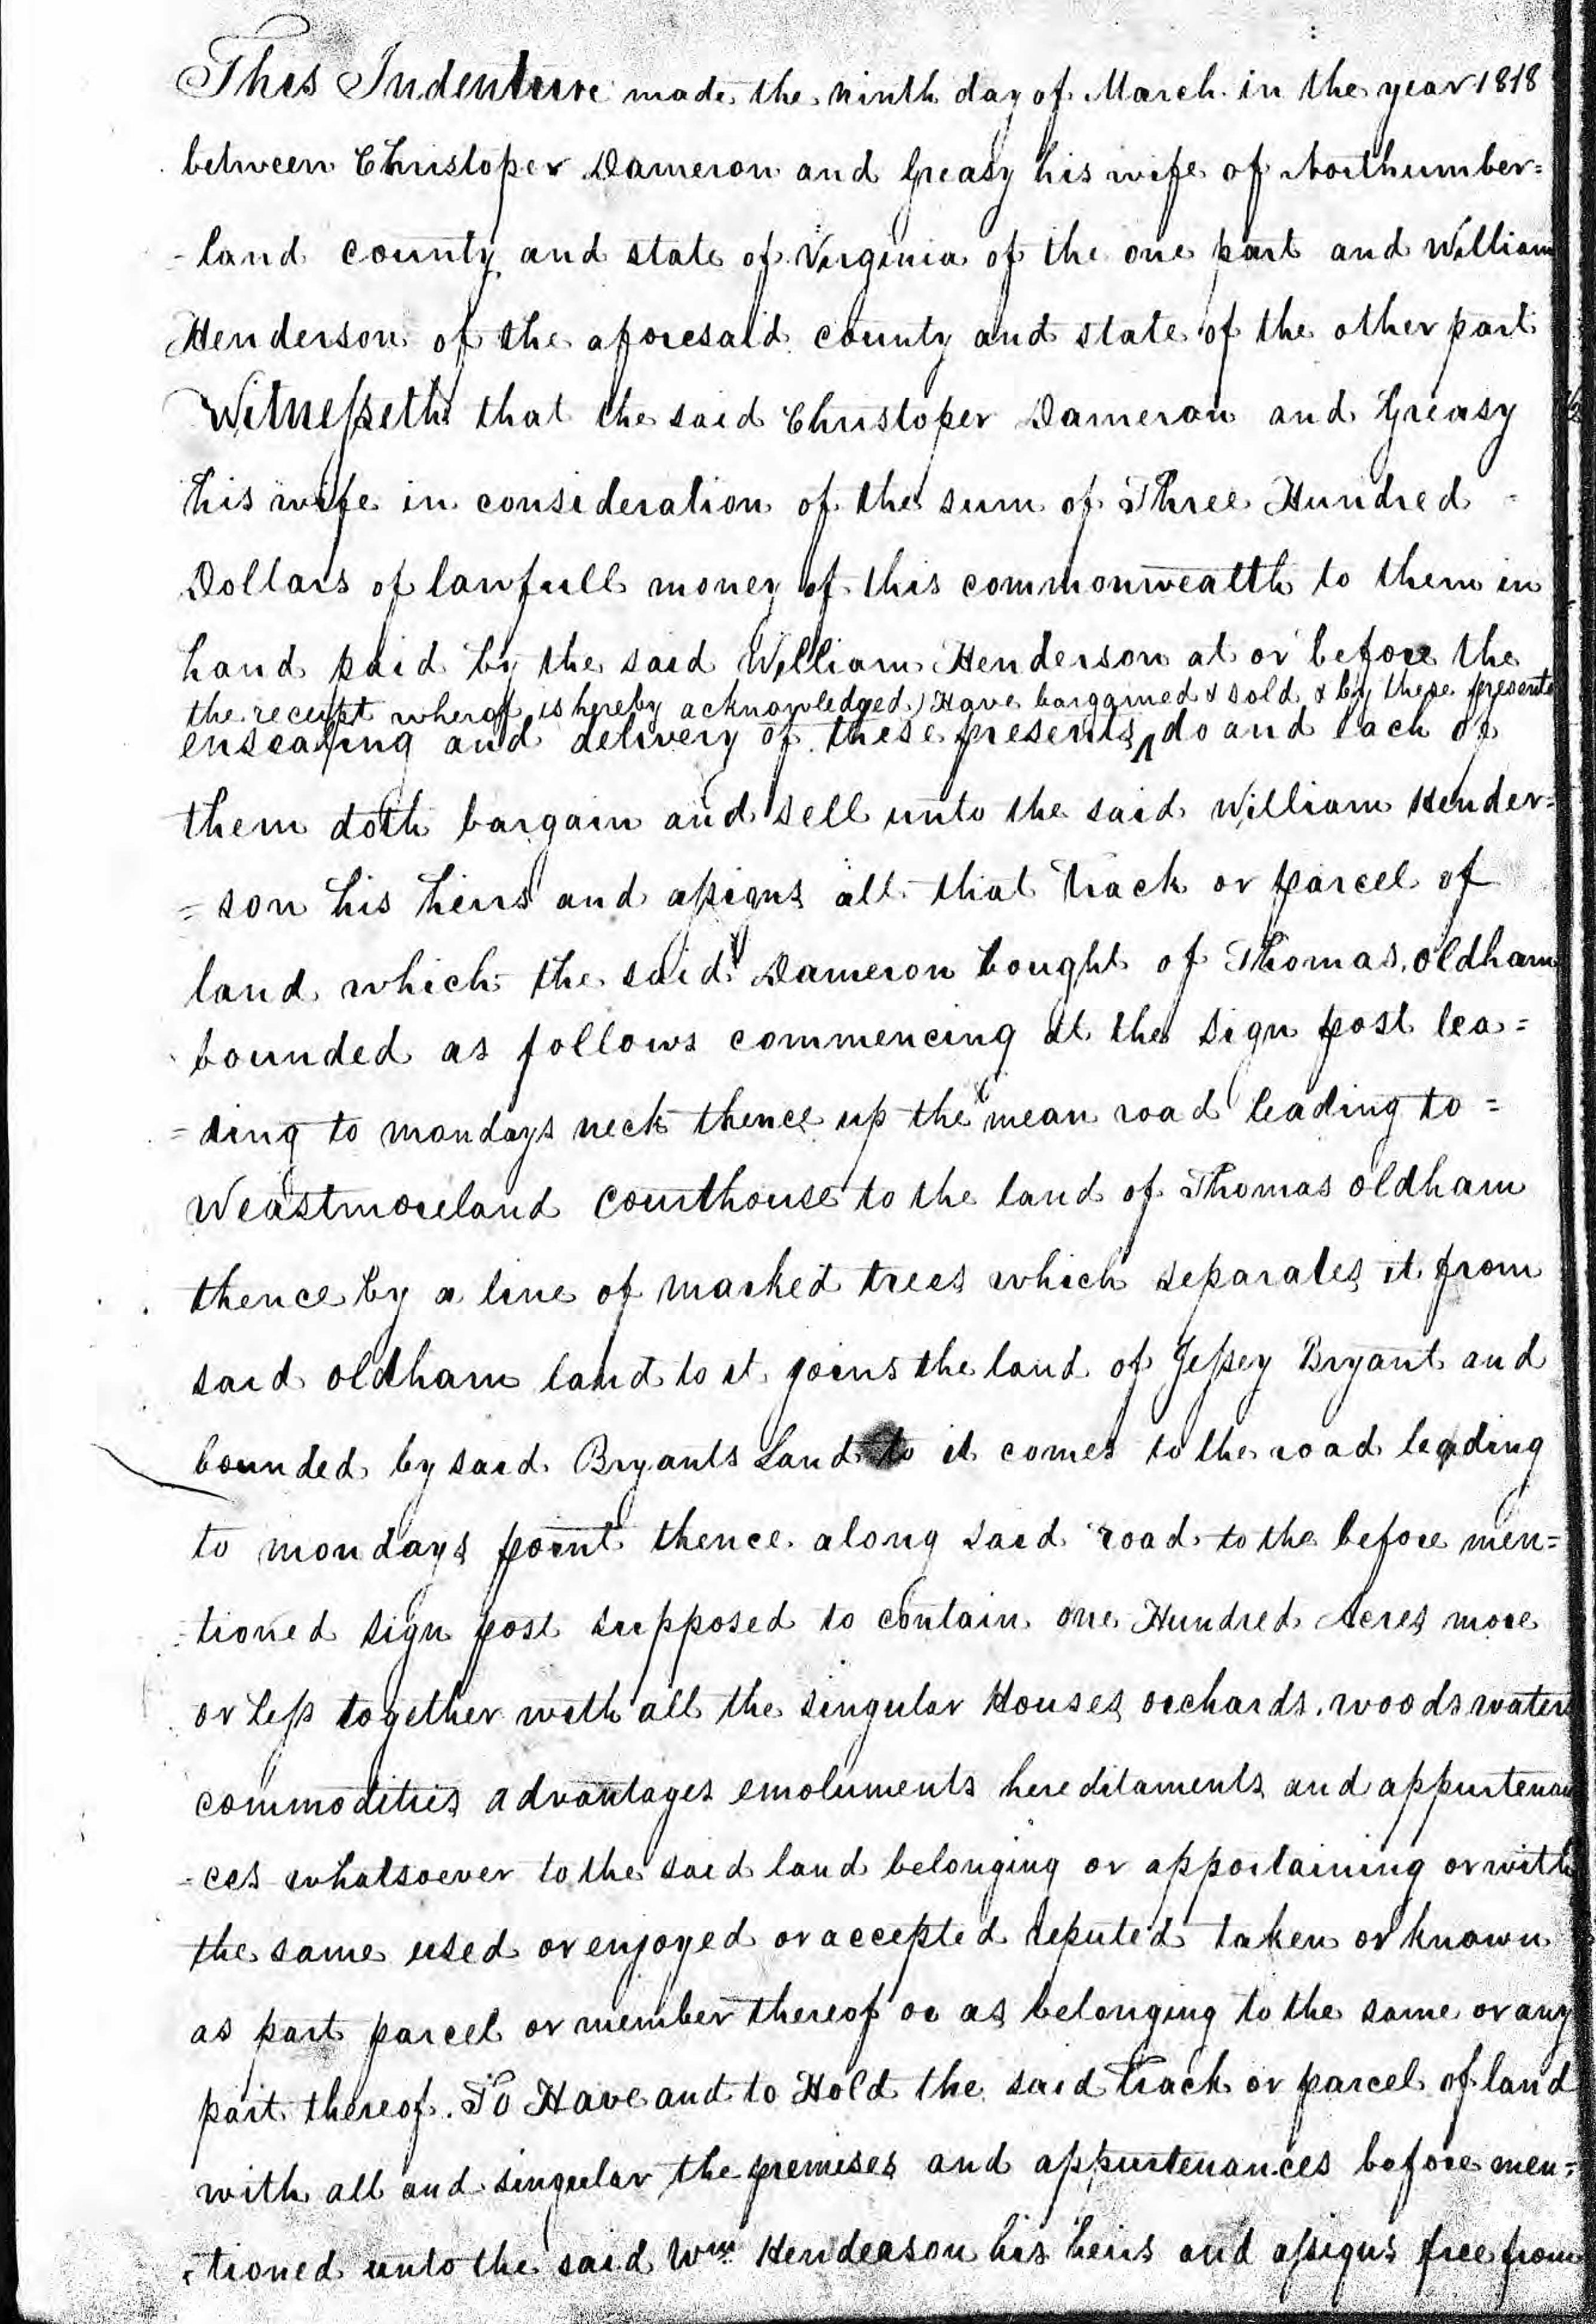 This Indenture made the ninth day of March in the year 1818
between Christoper Dameron and Greasy his wife of Northumber=
-land county and state of Virginia of the one part and William
Henderson of the aforesaid county and state of the other part
Witnesseth that the said Christoper Dameron and Greasy
his wife in consideration of the sum of Three Hundred
Dollars of lawfull money of this commonwealth to them in
hand paid by the said William Henderson at or before the
the receipt wherof is hereby acknowledged) Have bargained & sold & by these presents
ensealing and delivery of these presents, ^ do and each of
them doth bargain and sell unto the said William Hender=
=son his heirs and assigns all that track or parcel of
land which the said Dameron bought of Thomas oldham
bounded as follows commencing at the sign post lea=
=ding to mondays neck thence up the mean road leading to =
Weastmoreland Courthouse to the land of Thomas oldham
thence by a line of marked trees which separates it from
said oldham land to it joins the land of Jessey Bryant and
bounded by said Bryants Land to it comes to the road leading
to mondays point thence along said road to the before men=
-tioned sign post supposed to contain one Hundred Acres more
or less together with all the singular Houses orchards. woods waters
commodities advantages emoluments hereditaments and appurtenan
-ces whatsoever to the said land belonging or apportaining or with
the same used or enjoyed or accepted reputed taken or known
as part parcel or member thereof or as belonging to the same or any
part thereof. To Have and to Hold the said track or parcel of land
with all and singular the premises and appurtenances before men=
-tioned unto the said Wm Henderson his heirs and assigns free from